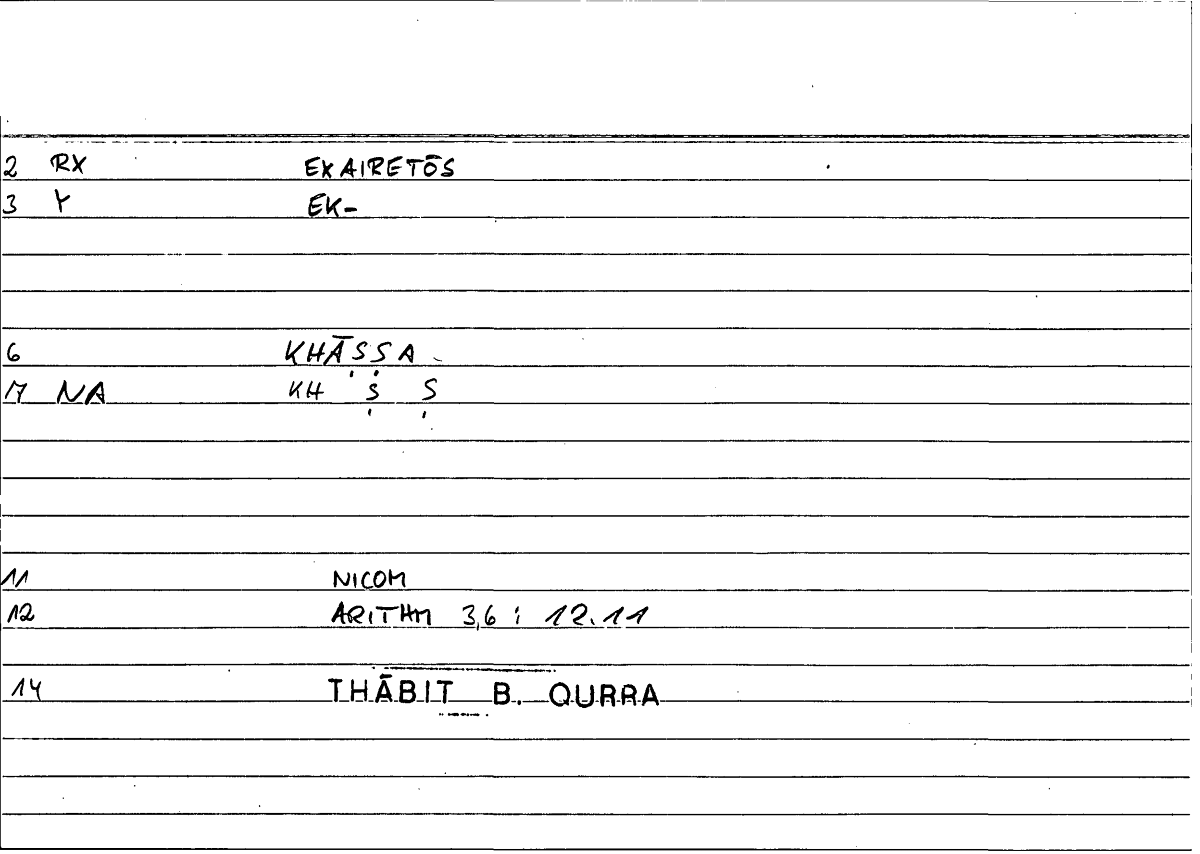 2 RX EXAIRETŌS
3 Y EK-
6 KHĀṢṢA
17 NA KH Ṣ Ṣ
11 NICOM
12 ARITHM 3,6 ; 12.11
14 THĀBIT B. QURRA